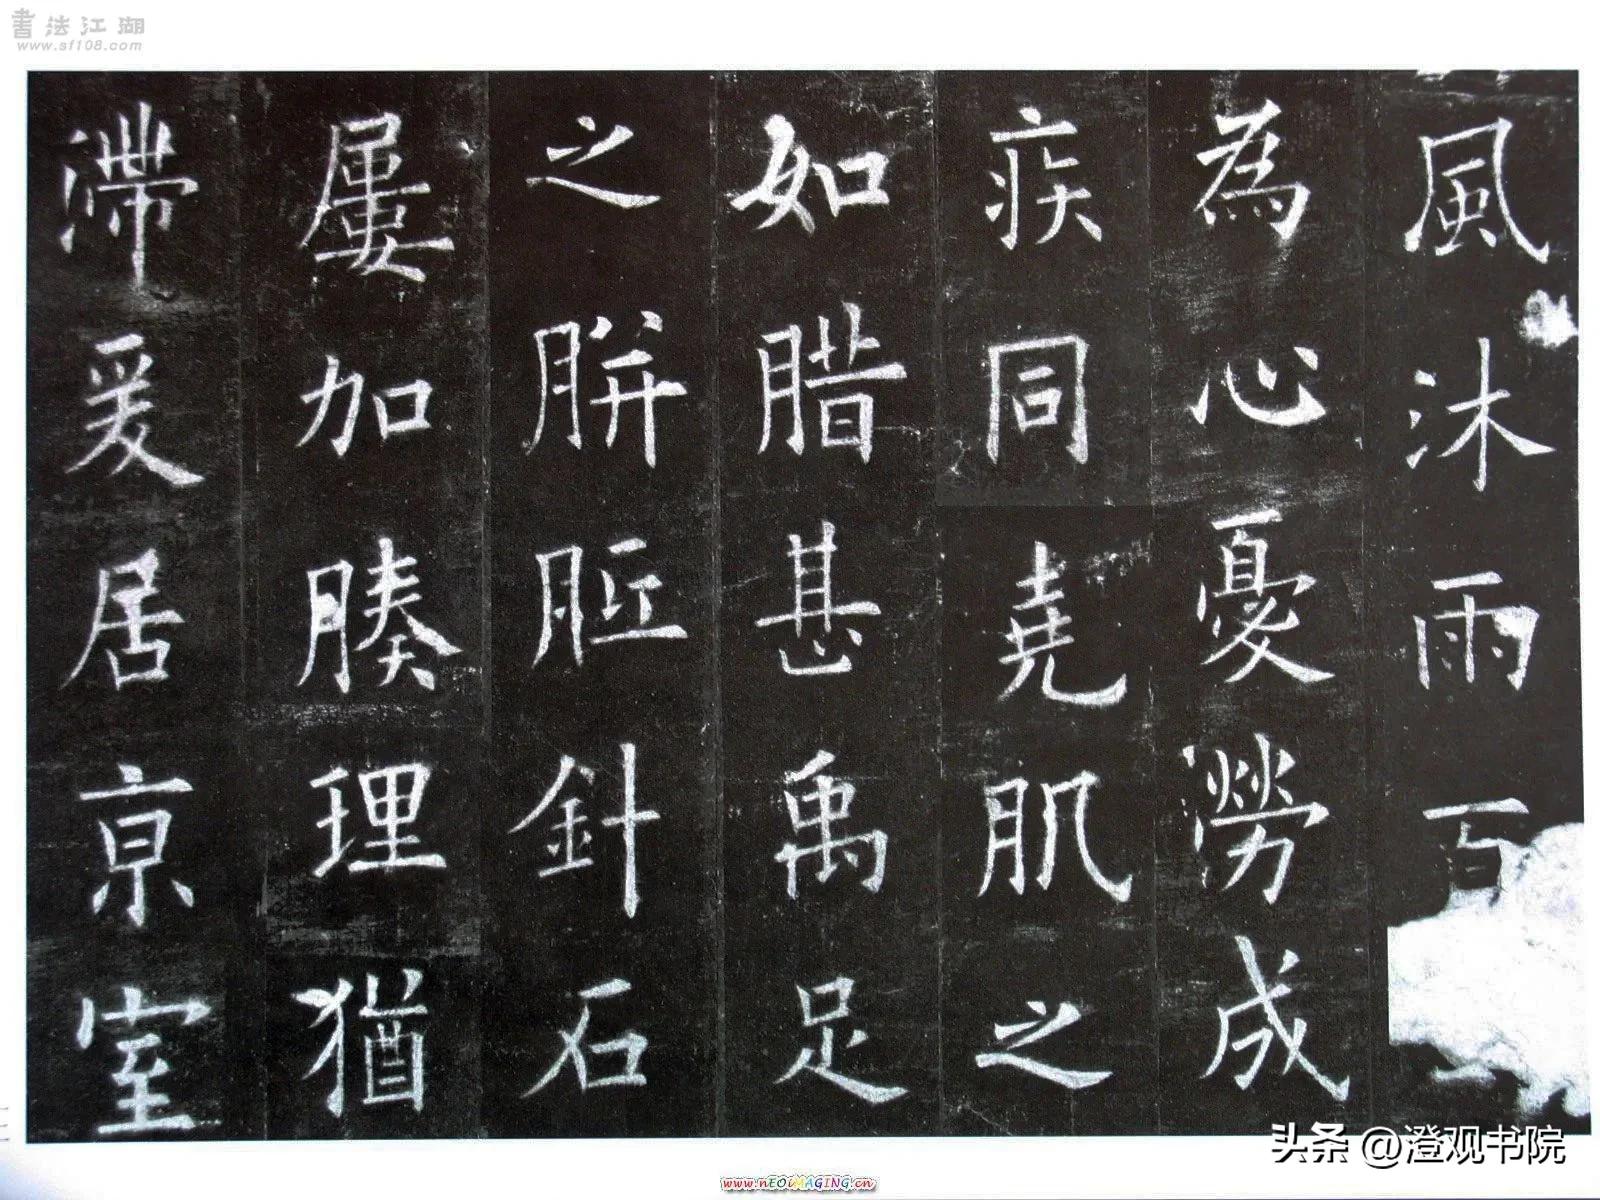 書法江湖
www.sf108.com
風沐雨百
為心憂勞成
疾同堯肌之
如腊甚禹足
之胼胝針石
屢加腠理猶
滯爰居京室
头条 @澄观书院
www.nEOiMAGING.cn